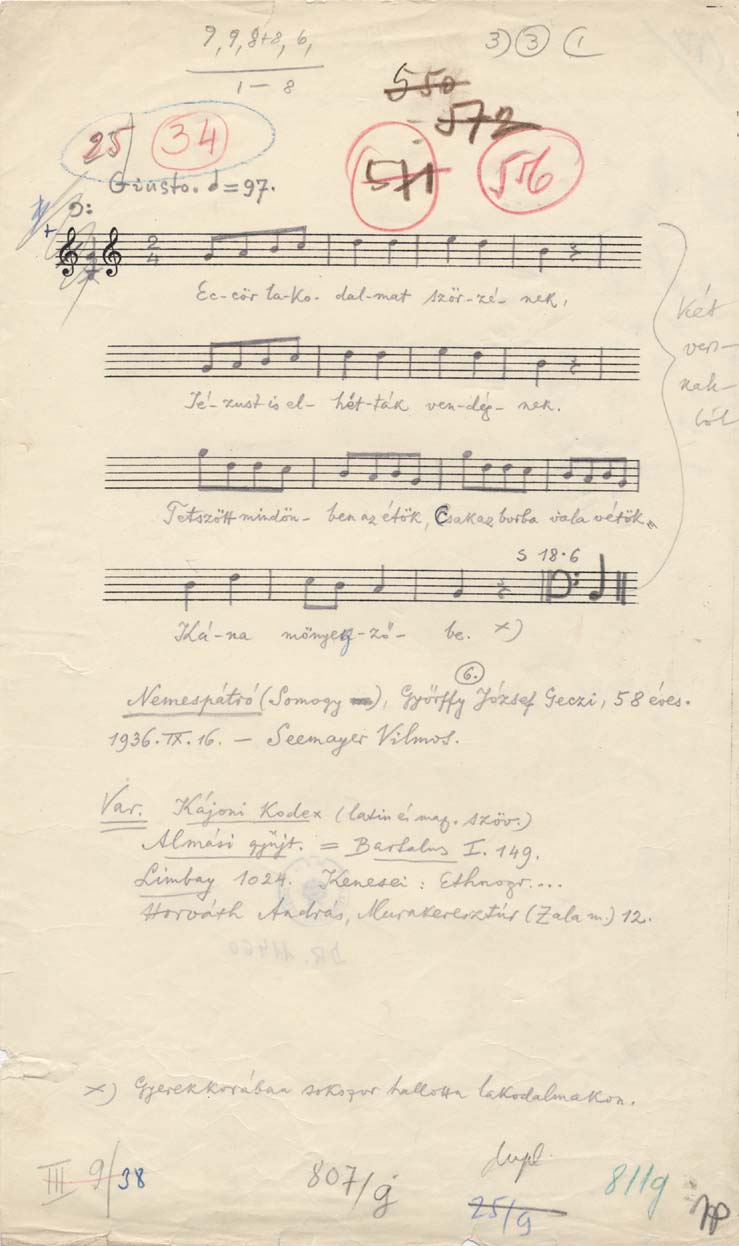 9, 9, 8+8, 6,
1 — 8
3) 3 (1
550
572
25/ 34
571 556
Giusto. ♩=97.
2
4
Ec-cör la-ko-dal-mat ször-zé-nek,
két
vers-
nak-
ból
Jé-zust is el-hét-ták ven-dég-nek.
Tetszött mindön-ben az étök, Csak az borba vala vétök„
S 18·6
Ká-na mönyegg-ző-be. x)
6.
Nemespátró (Somogy), Győrffy József Geczi, 58 éves.
1936. IX. 16. — Seemayer Vilmos.
Var. Kájoni Kodex (latin és mag. szöv.)
Almási gyűjt. = Bartalus I. 149.
Limbay 1024. Kenesei : Ethnogr....
Horváth András, Murakeresztúr (Zala m.) 12.
x) Gyerekkorában sokszor hallotta lakodalmakon.
III 9/38
807/g
dupl.
25/g
811g